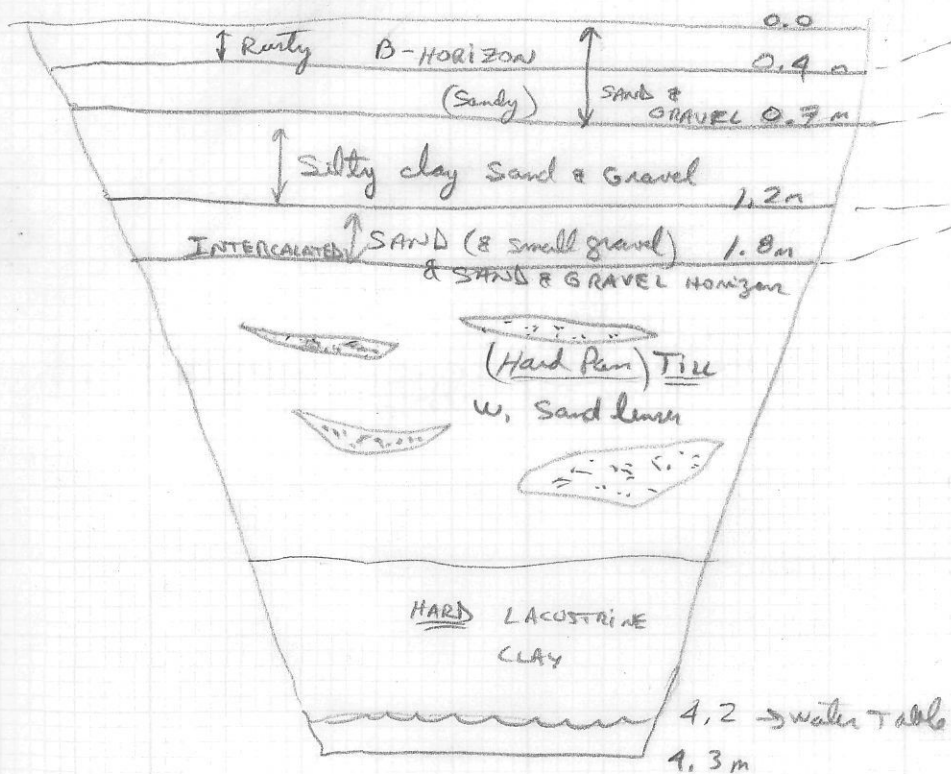 0.0
Rusty B-HORIZON 0.4 m
(Sandy) SAND &
GRAVEL 0.7 m
Silty clay Sand & Gravel
1.2m
INTERCALATED SAND (& small gravel) 1.8m
& SAND & GRAVEL Horizon
(Hard Pan) TILL
W. Sand lenses
HARD LACUSTRINE
CLAY
4.2 → Water Table
4.3 m